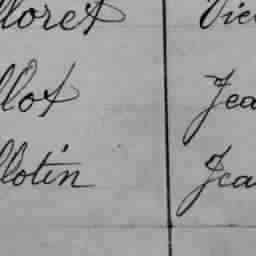 lloret Vic
llot Jea
llotin Jea